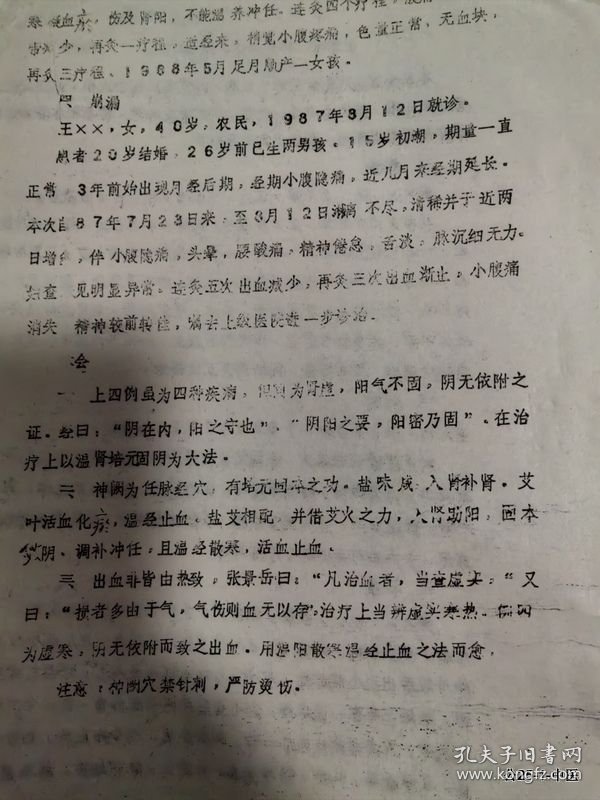 寒凝血瘀，伤及肾阳，不能温养冲任。连灸四个疗程，
减少，再灸一疗程。适经来，稍觉小腹疼痛，色量正常、无血块，
再灸三疗程、1988年5月足月顺产一女孩。
四 崩漏
王××，女，40岁，农民，1987年8月12日就诊。
患者20岁结婚，26岁前已生两男孩。15岁初潮，期量一直
正常 3年前始出现月经后期，经期小腹隐痛，近几月来经期延长。
本次自87年7月23日来，至8月12日淋漓不尽，清稀并于近两
日增多，伴小腹隐痛，头晕，腰酸痛，精神倦怠，舌淡，脉沉细无力。
妇查 见明显异常。连灸五次出血减少，再灸三次出血渐止，小腹痛
消失 精神较前转佳，嘱去上级医院进一步诊治。
会
一 上四例虽为四种疾病，但同为肾虚，阳气不固，阴无依附之
证。经曰：“阴在内，阳之守也”、“阴阳之要，阳密乃固”。在治
疗上以温肾培元固阴为大法。
二 神阙为任脉经穴，有培元固本之功。盐味咸，入肾补肾。艾
叶活血化瘀，温经止血。盐艾相配，并借艾火之力，入肾助阳，固本
阴、调补冲任，且温经散寒，活血止血。
三 出血非皆由热致，张景岳曰：“凡治血者，当查虚实，”又
曰：“损者多由于气，气伤则血无以存”，治疗上当辨虚实寒热。例四
为虚寒，阴无依附而致之出血。用温阳散寒温经止血之法而愈，
注意：神阙穴禁针刺，严防烫伤。
孔夫子旧书网
www.kongfz.com